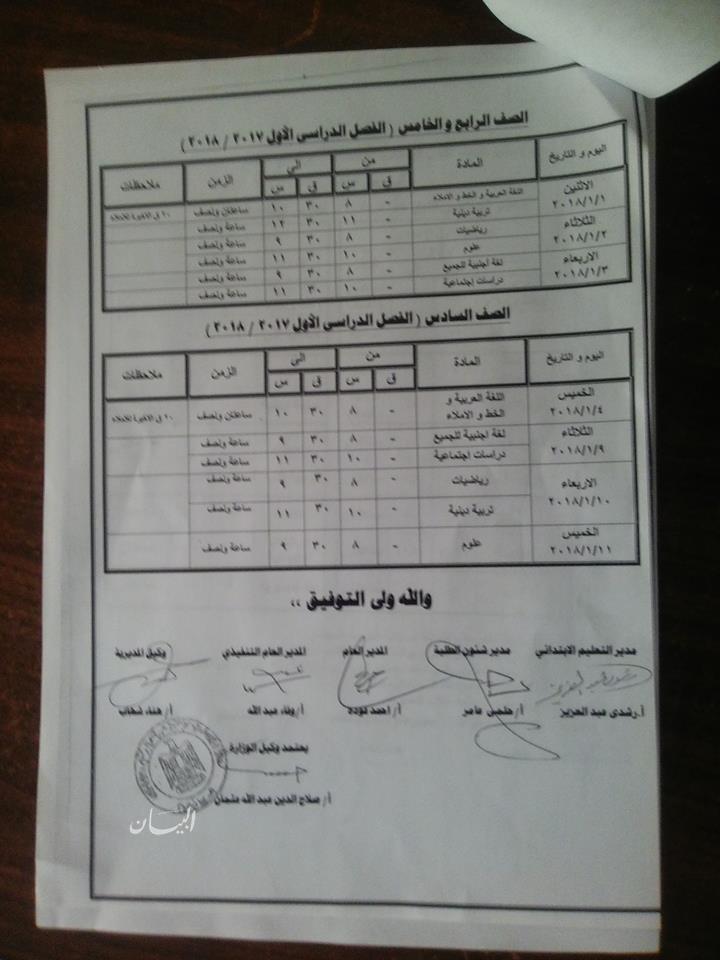 الصف الرابع والخامس ( الفصل الدراسى الأول ٢٠١٧ / ٢٠١٨ )
اليوم و التاريخ المادة من الى الزمن ملاحظات
ق س ق س
الاثنين ٢٠١٨/١/١ اللغة العربية و الخط و الاملاء - ٨ ٣٠ ١٠ ساعتان ونصف
تربية دينية - ١١ ٣٠ ١٢ ساعة ونصف
الثلاثاء ٢٠١٨/١/٢ رياضيات - ٨ ٣٠ ٩ ساعة ونصف
علوم - ١٠ ٣٠ ١١ ساعة ونصف
الاربعاء ٢٠١٨/١/٣ لغة أجنبية للجميع - ٨ ٣٠ ٩ ساعة ونصف
دراسات إجتماعية - ١٠ ٣٠ ١١ ساعة ونصف
الصف السادس ( الفصل الدراسى الأول ٢٠١٧ / ٢٠١٨ )
اليوم و التاريخ المادة من الى الزمن ملاحظات
ق س ق س
الخميس ٢٠١٨/١/٤ اللغة العربية و الخط و الاملاء - ٨ ٣٠ ١٠ ساعتان ونصف
الثلاثاء ٢٠١٨/١/٩ لغة اجنبية للجميع - ٨ ٣٠ ٩ ساعة ونصف
دراسات اجتماعية - ١٠ ٣٠ ١١ ساعة ونصف
الاربعاء ٢٠١٨/١/١٠ رياضيات - ٨ ٣٠ ٩ ساعة ونصف
تربية دينية - ١٠ ٣٠ ١١ ساعة ونصف
الخميس ٢٠١٨/١/١١ علوم - ٨ ٣٠ ٩ ساعة ونصف
والله ولى التوفيق ،،
مدير التعليم الابتدائي مدير شئون الطلبة المدير العام المدير العام التنفيذي وكيل المديرية
أ.رشدى عبد العزيز أ/ حلمى عامر أ/ احمد فودة أ/ وفاء عبد الله أ/ هناء شهاب
يعتمد وكيل الوزارة
أ/ صلاح الدين عبد الله
البيان